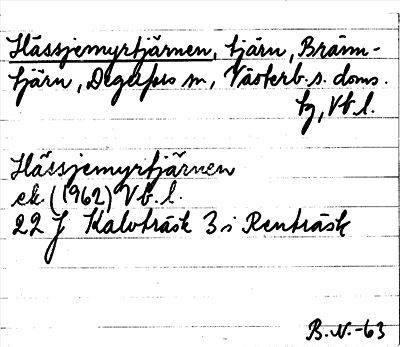 Hässjemyrtjärnen, tjärn, Bränn-
tjärn, Degerfors sn, Västerb. s. doms.
tg, Vb l.
Hässjemyrtjärnen
ek (1962) Vb. l.
22 J Kalvträsk 3 i Renträsk
B.N.-63